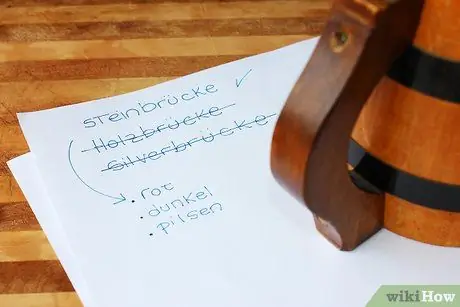 steinbrücke ✓
Holzbrücke
Silverbrücke
. rot
. dunkel
. Pilsen
wikiHow